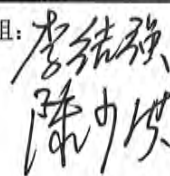 组:李结强
陈少洪